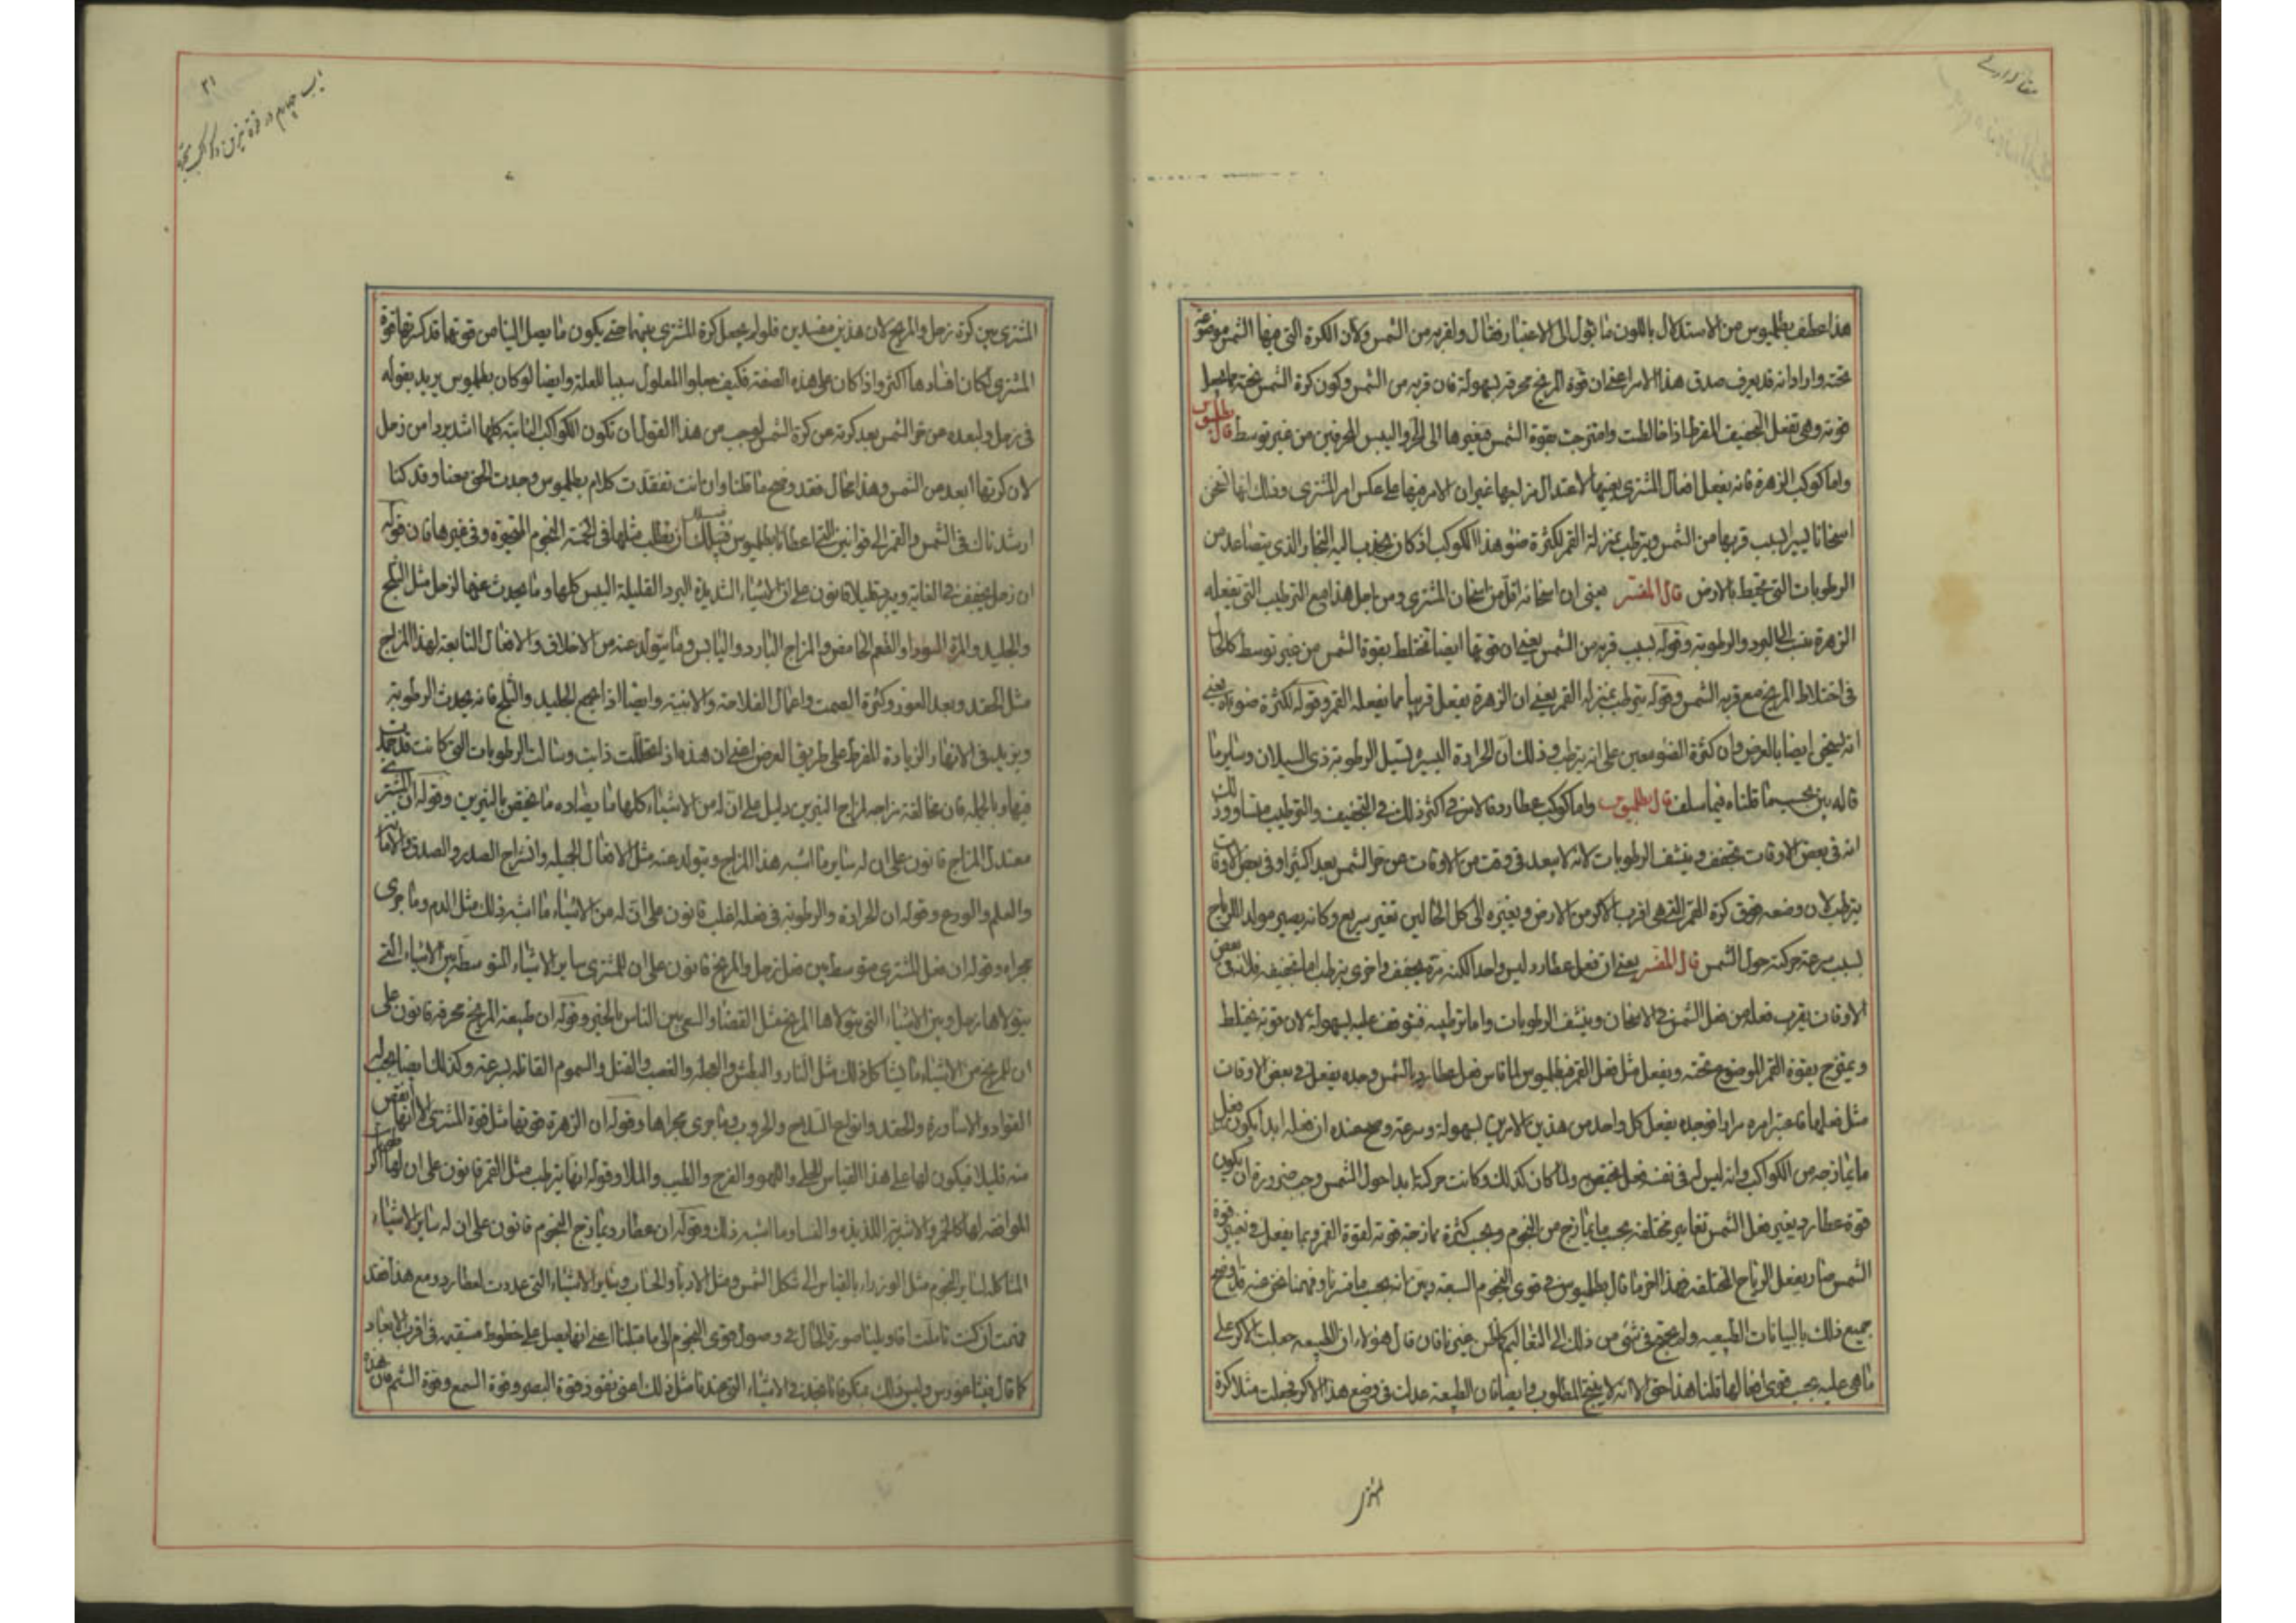 هذا عطف بطلميوس من الاستدلال باللون ما يؤول الى الاعتبار فقال ولقربه من الشمس ولان الكرة التي فيها الشمس موضوعة
تحته واراد انه قد يعرف صدق هذا الامر اعني ان قوة المريخ محرقة بسهولة فان قربه من الشمس وكون كرة الشمس تحته
قوته وهي تفعل التجفيف المفرط اذا خالطت وامتزجت بقوة الشمس فيغيرها الى الحر واليبس المحرقين من غير توسط قال بطلميوس
واما كوكب الزهرة فانه يفعل افعال المشتري بعينها لاعتدال مزاجها غير ان الامر فيها على عكس امر المشتري وذلك انها تسخن
اسخانا يسيرا بسبب قربها من الشمس ويرطب بمنزلة القمر لكثرة ضوء هذا الكوكب اذ كان يجذب اليه البخار الذي يتصاعد من
الرطوبات التي تحيط بالارض قال المفسر يعني ان اسخانه اقل من اسخان المشتري ومن اجل هذا مع الترطيب التي تفعله
الزهرة ينسب الى البرد والرطوبة وقوله بسبب قربه من الشمس يعني ان قوتها ايضا تختلط بقوة الشمس من غير توسط كالحال
في اختلاط المريخ مع قربه الشمس وقوله يترطب بمنزلة القمر يعني ان الزهرة يفعل قريبا مما يفعله القمر وقوله لكثرة ضوءه يعني
انه يسخن ايضا بالعرض وان كثرة الضوء معين على انه يرطب وذلك ان الحرارة اليسيرة تسيل الرطوبة ذي السيلان وساير ما
قاله بين بحسب ما قلناه فيما سلف قال بطلميوس واما كوكب عطارد فالامر في اكثر ذلك في التجفيف والترطيب متساو وذلك
انه في بعض الاوقات يجفف وينشف الرطوبات لانه لا يبعد في وقت من الاوقات عن حر الشمس بعدا كثيرا وفي بعض الاوقات
يرطب لان وضعه فوق كرة القمر التي هي اقرب الاكر من الارض ويغيره الى كل الحالين تغير سريع وكانه يصير مولدا للرياح
بسبب سرعة حركته حول الشمس قال المفسر يعني ان فعل عطارد ليس واحدا لكنه مرة يجفف واخرى يرطب اما تجفيفه فلانه في بعض
الاوقات يقرب فعله من فعل الشمس في الاسخان وينشف الرطوبات واما ترطيبه فتوقف عليه بسهولة لان قوته تختلط
ويمتزج بقوة القمر الموضوع تحته ويفعل مثل فعل القمر فبطلميوس لما قاس فعل عطارد بالشمس وجده يفعل في بعض الاوقات
مثل فعلها فاعتبر امره مرارا فوجده يفعل كل واحد من هذين الامرين بسهولة وسرعة وصح عنده ان فعله ابدا يكون بفعل
ما يمازجه من الكواكب وانه ليس له في نفسه فعل يختص ولما كان كذلك وكانت حركته ابدا حول الشمس وجب ضرورة ان يكون
قوة عطارد يغير فعل الشمس تغايير مختلفة بحسب ما يمازج من النجوم وبحسب كثرة ممازجة قوته لقوة القمر وبما يفعل في تغيير قوة
الشمس صار يفعل الرياح المختلفة فهذا اخر ما قال بطلميوس في قوى النجوم السبعة وبين انه بحسب ما فسرنا وفهمنا نحن عنه قد وضح
جميع ذلك بالبيانات الطبيعية ولم يحتج في شئ من ذلك الى التعاليم لكن غيرنا فان قال هؤلاء ان الطبيعة جعلت الاكر على
ما هي عليه بحسب قوى افعالها قلنا هذا حق الا انه لا ينتج المطلوب وايضا فان الطبيعة عدلت في وضع هذا الاكر فجعلت مثلا كرة
المشتري
المشتري بين كرة زحل والمريخ لان هذين مفسدين فلو لم يجعل كرة المشتري بينهما حتى يكون ما يصل الينا من قوتهما قد كسرتها قوة
المشتري لكان افسادها اكثر واذا كان على هذه الصفة فكيف جعلوا المعلول سببا للعلة وايضا لو كان بطلميوس يريد بقوله
في زحل ولبعده من حر الشمس بعد كرته من كرة الشمس لوجب من هذا القول ان تكون الكواكب الثابتة كلها اشد بردا من زحل
لان كرتها ابعد من الشمس وهذا محال فقد وضح ما قلنا وان انت تفقدت كلام بطلميوس وجدت الحق معنا وقد كنا
ارشدناك في الشمس والقمر الى قوانين التي اعطانا بطلميوس فسبيلك ان يطلب مثلها في الخمسة النجوم المتحيرة وفي غيرها فان قوله
ان زحل يجفف في الغاية ويبرد قليلا قانون على ان الاشياء الشديدة البرد القليلة اليبس كلها وما يحدث عنها لزحل مثل الثلج
والجليد والمرة السوداء والطعم الحامض والمزاج البارد واليابس وما يتولد عنه من الاخلاق والافعال التابعة لهذا المزاج
مثل الحقد وبعد الغور وكثرة الصمت واعمال الفلاحة والابنية وايضا اذا جمع الجليد والثلج فانه يحدث الرطوبة
ويزيد في الانهار الزيادة المفرط على طريق العرض اعني ان هذه اذا تحللت ذابت وسالت الرطوبات التي كانت قد جمدت
فيها وبالجملة فان مخالفة مزاجه لمزاج النيرين دليل على ان له من الاشياء كلها ما يضاده ما يختص بالنيرين وقوله ان المشتري
معتدل المزاج قانون على ان له ساير ما اشبه هذا المزاج ويتولد عنه مثل الافعال الجميلة وانشراح الصدر والصدق والامانة
والعلم والورع وقوله ان الحرارة والرطوبة في فعله اغلب قانون على ان له من الاشياء ما اشبه ذلك مثل الدم وما جرى
مجراه وقوله ان فعل المشتري متوسط بين فعل زحل والمريخ قانون على ان للمشتري ساير الاشياء المتوسطة بين الاشياء التي
يتولاها زحل وبين الاشياء التي يتولاها المريخ مثل القضاء والسعي بين الناس بالخير وقوله ان طبيعة المريخ محرقة قانون على
ان للمريخ من الاشياء ما يشاكل ذلك مثل النار والبطش والغضب والقتل والسموم القاتلة بسرعة وكذلك ايضا يجب له
القواد والاساورة والحقد وانواع السلاح والحروب وما جرى مجراها وقوله ان الزهرة قوتها مثل قوة المشتري الا انها انقص
منه قليلا فيكون لها على هذا القياس الحلي واللهو والفرح والطيب والملا وقوله انها يرطب مثل القمر قانون على ان لها
الموافقة لها كالخمر والاشربة اللذيذة والنساء وما اشبه ذلك وقوله ان عطارد يمازج النجوم قانون على ان له ساير الاشياء
المشاكلة لساير النجوم مثل الوزراء بالقياس الى شكل الشمس ومثل الادباء والحساب وساير الاشياء التي عددت لعطارد ومع هذا فقد
فهمت ان كنت تاملت اقاويلنا صورة الحال في وصول قوى النجوم الى ما قبلنا اعني انها يصل على خطوط مستقيمة في اقرب الابعاد
كما قال فيثاغورس وليس ذلك منكرا فانا نجد في الاشياء التي عندنا مثل ذلك اعني نفوذ قوة البصر وقوة السمع وقوة الشم فان هذه